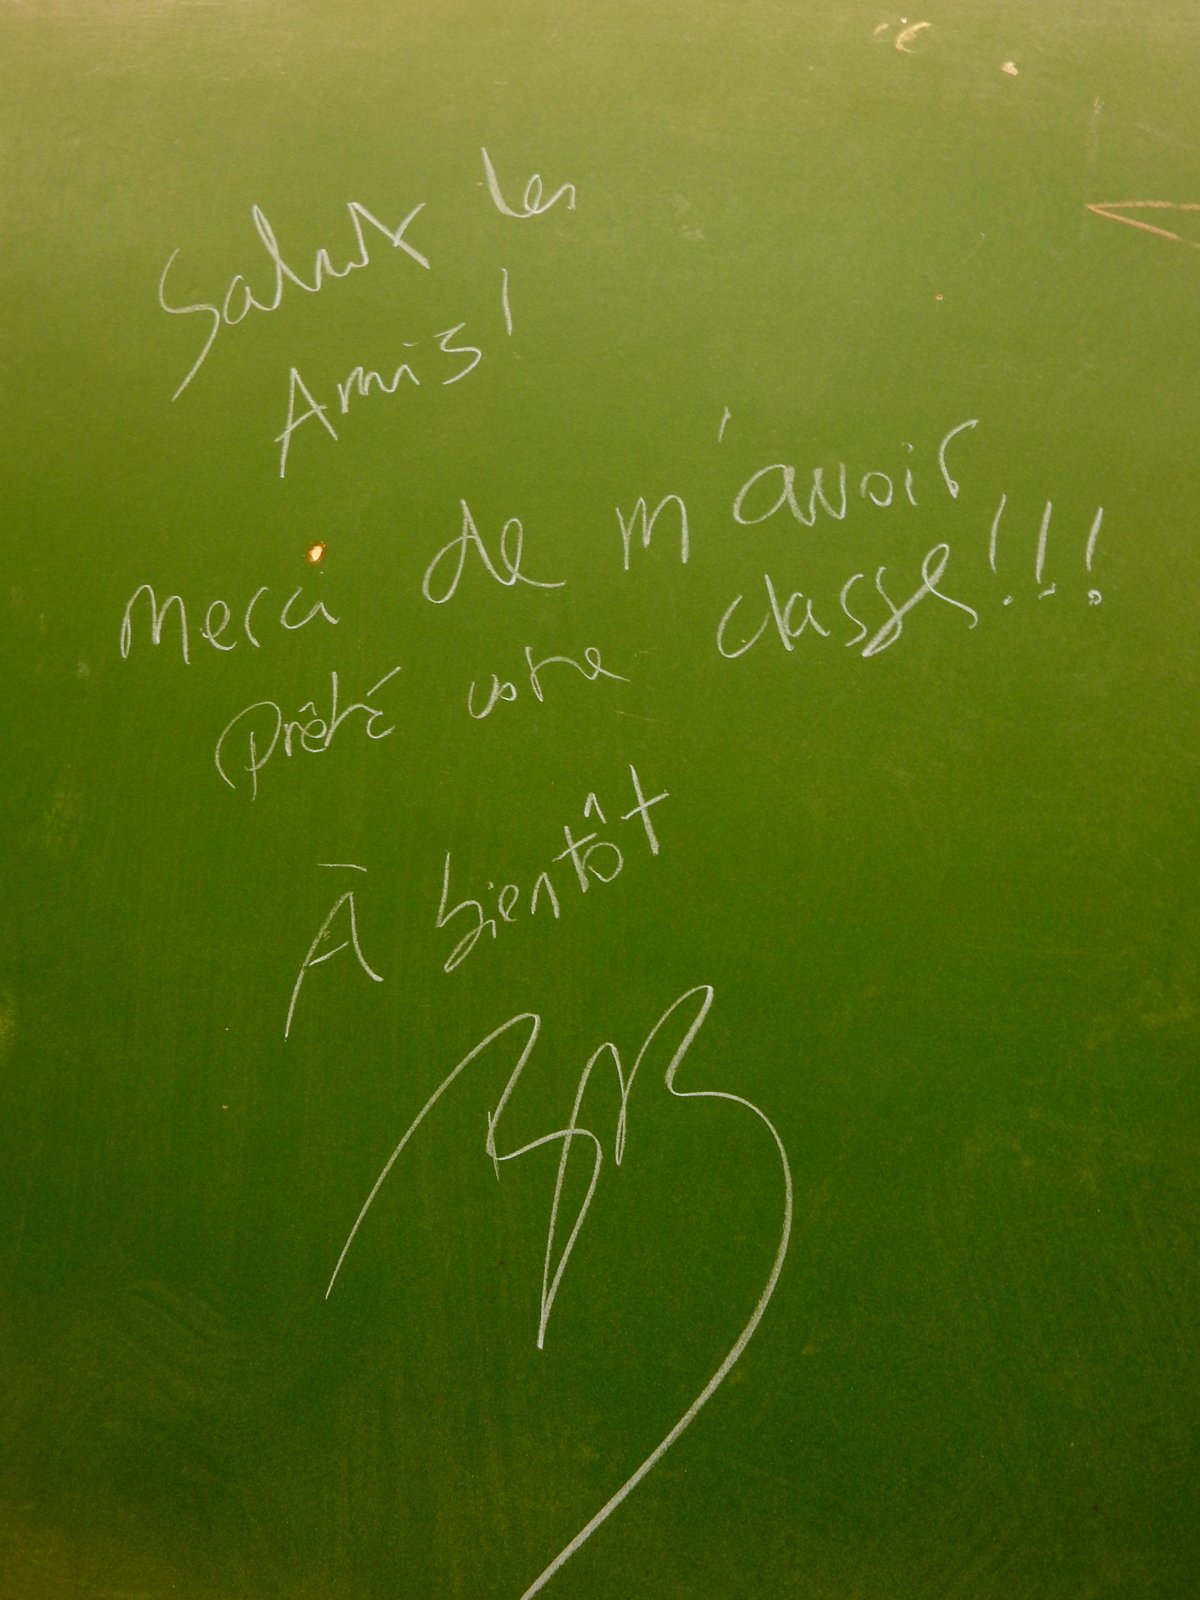 Salut les
Amis!
Merci de m'avoir
Prêté votre classe!!!
À bientôt